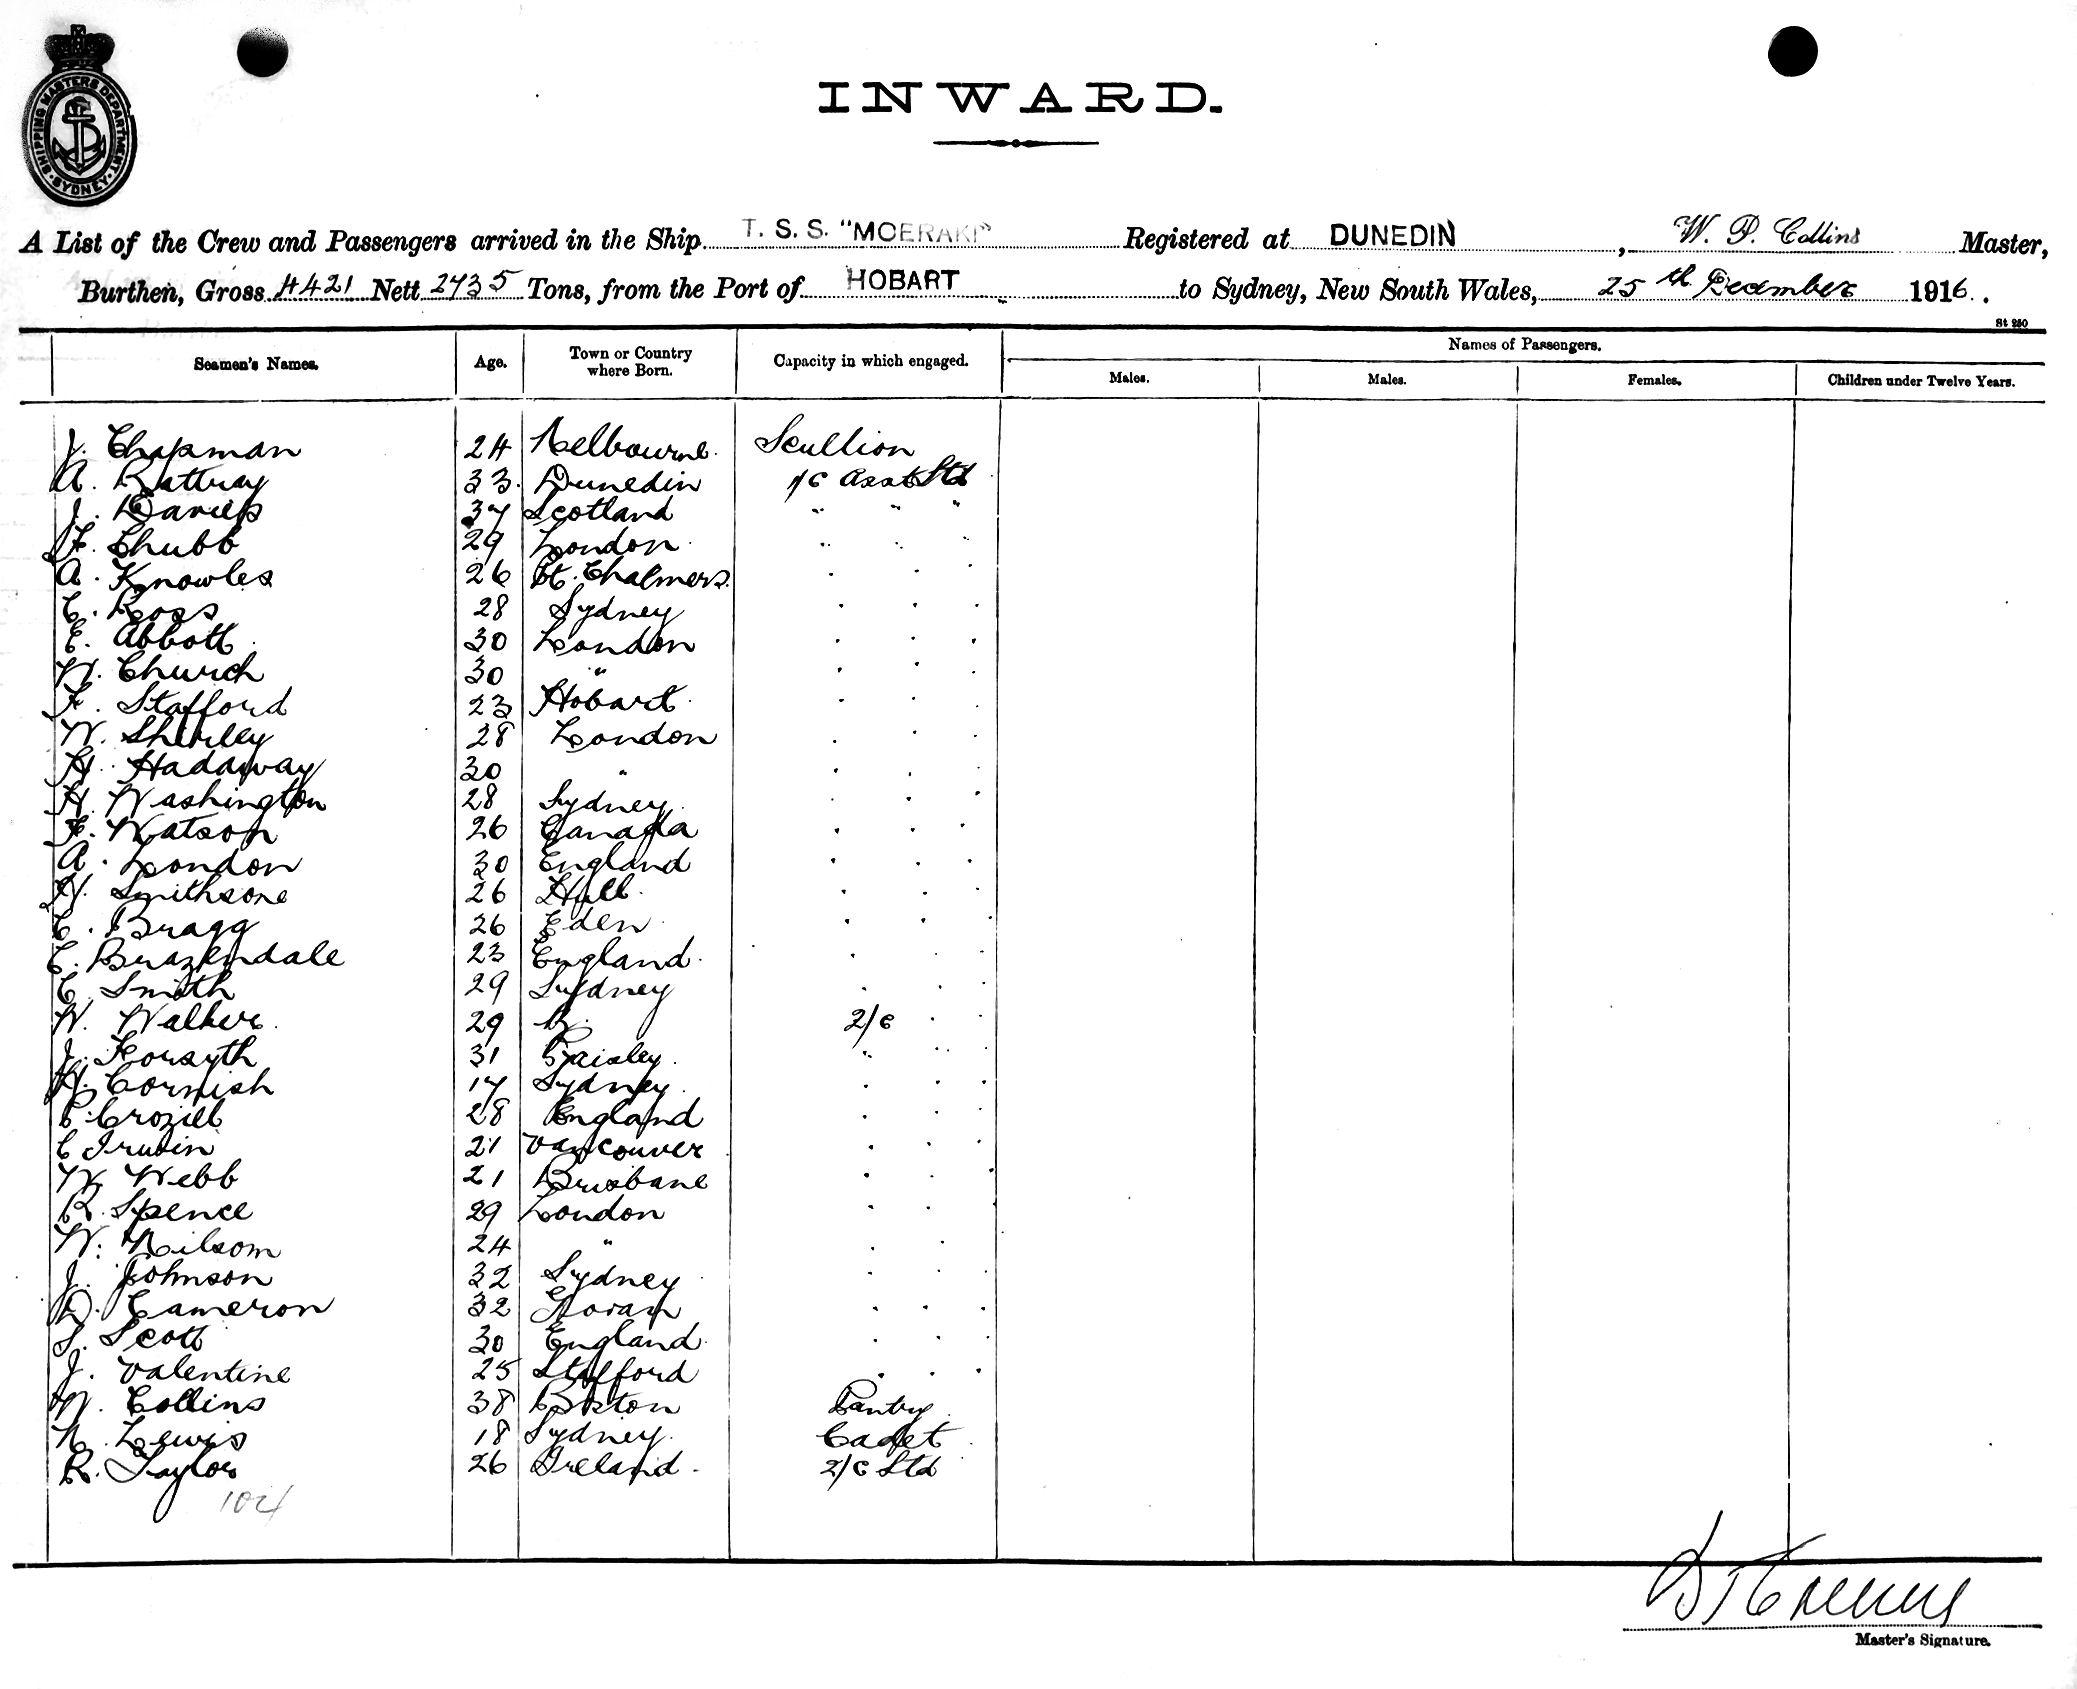 SHIPPING MASTERS DEPARTMENT
SYDNEY
INWARD.
A List of the Crew and Passengers arrived in the Ship T. S. S. "MOERAKI" Registered at DUNEDIN, W. P. Collins Master,
Burthen, Gross 4421 Nett 2735 Tons, from the Port of HOBART to Sydney, New South Wales, 25th December 1916.
St 250
Seamen's Names. Age. Town or Country where Born. Capacity in which engaged. Names of Passengers.
Males. Males. Females. Children under Twelve Years.
J. Chapman 24 Melbourne. Scullion
A. Rattray 33. Dunedin 1/C Asst Std
J. Davies 37 Scotland " " "
F. Chubb 29 London " " "
A. Knowles 26 Pt. Chalmers. " " "
C. Ross 28 Sydney " " "
E. Abbott 30 London " " "
W. Church 30 " " " "
F. Stafford 23 Hobart " " "
W. Shirley 28 London " " "
H. Hadaway 30 " " " "
H. Washington 28 Sydney " " "
F. Watson 26 Canada " " "
A. London 30 England " " "
H. Smithsone 26 Hull " " "
C. Bragg 26 Eden " " "
C. Brazendale 23 England " " "
C. Smith 29 Sydney " " "
W. Walker 29 2/C " "
J. Forsyth 31 Paisley " " "
H. Cornish 17 Sydney " " "
Crozill 28 England " " "
C Irwin 21 Vancouver " " "
W. Webb 21 Brisbane " " "
R. Spence 29 London " " "
W. Nilsom 24 " " " "
J. Johnson 32 Sydney " " "
D. Cameron 32 " " "
S. Scott 30 England " " "
J. Valentine 25 Stafford " " "
W. Collins 38 Boston Pantry
N. Lewis 18 Sydney. Cadet
R. Taylor 26 Ireland 2/C Std
104
Master's Signature.